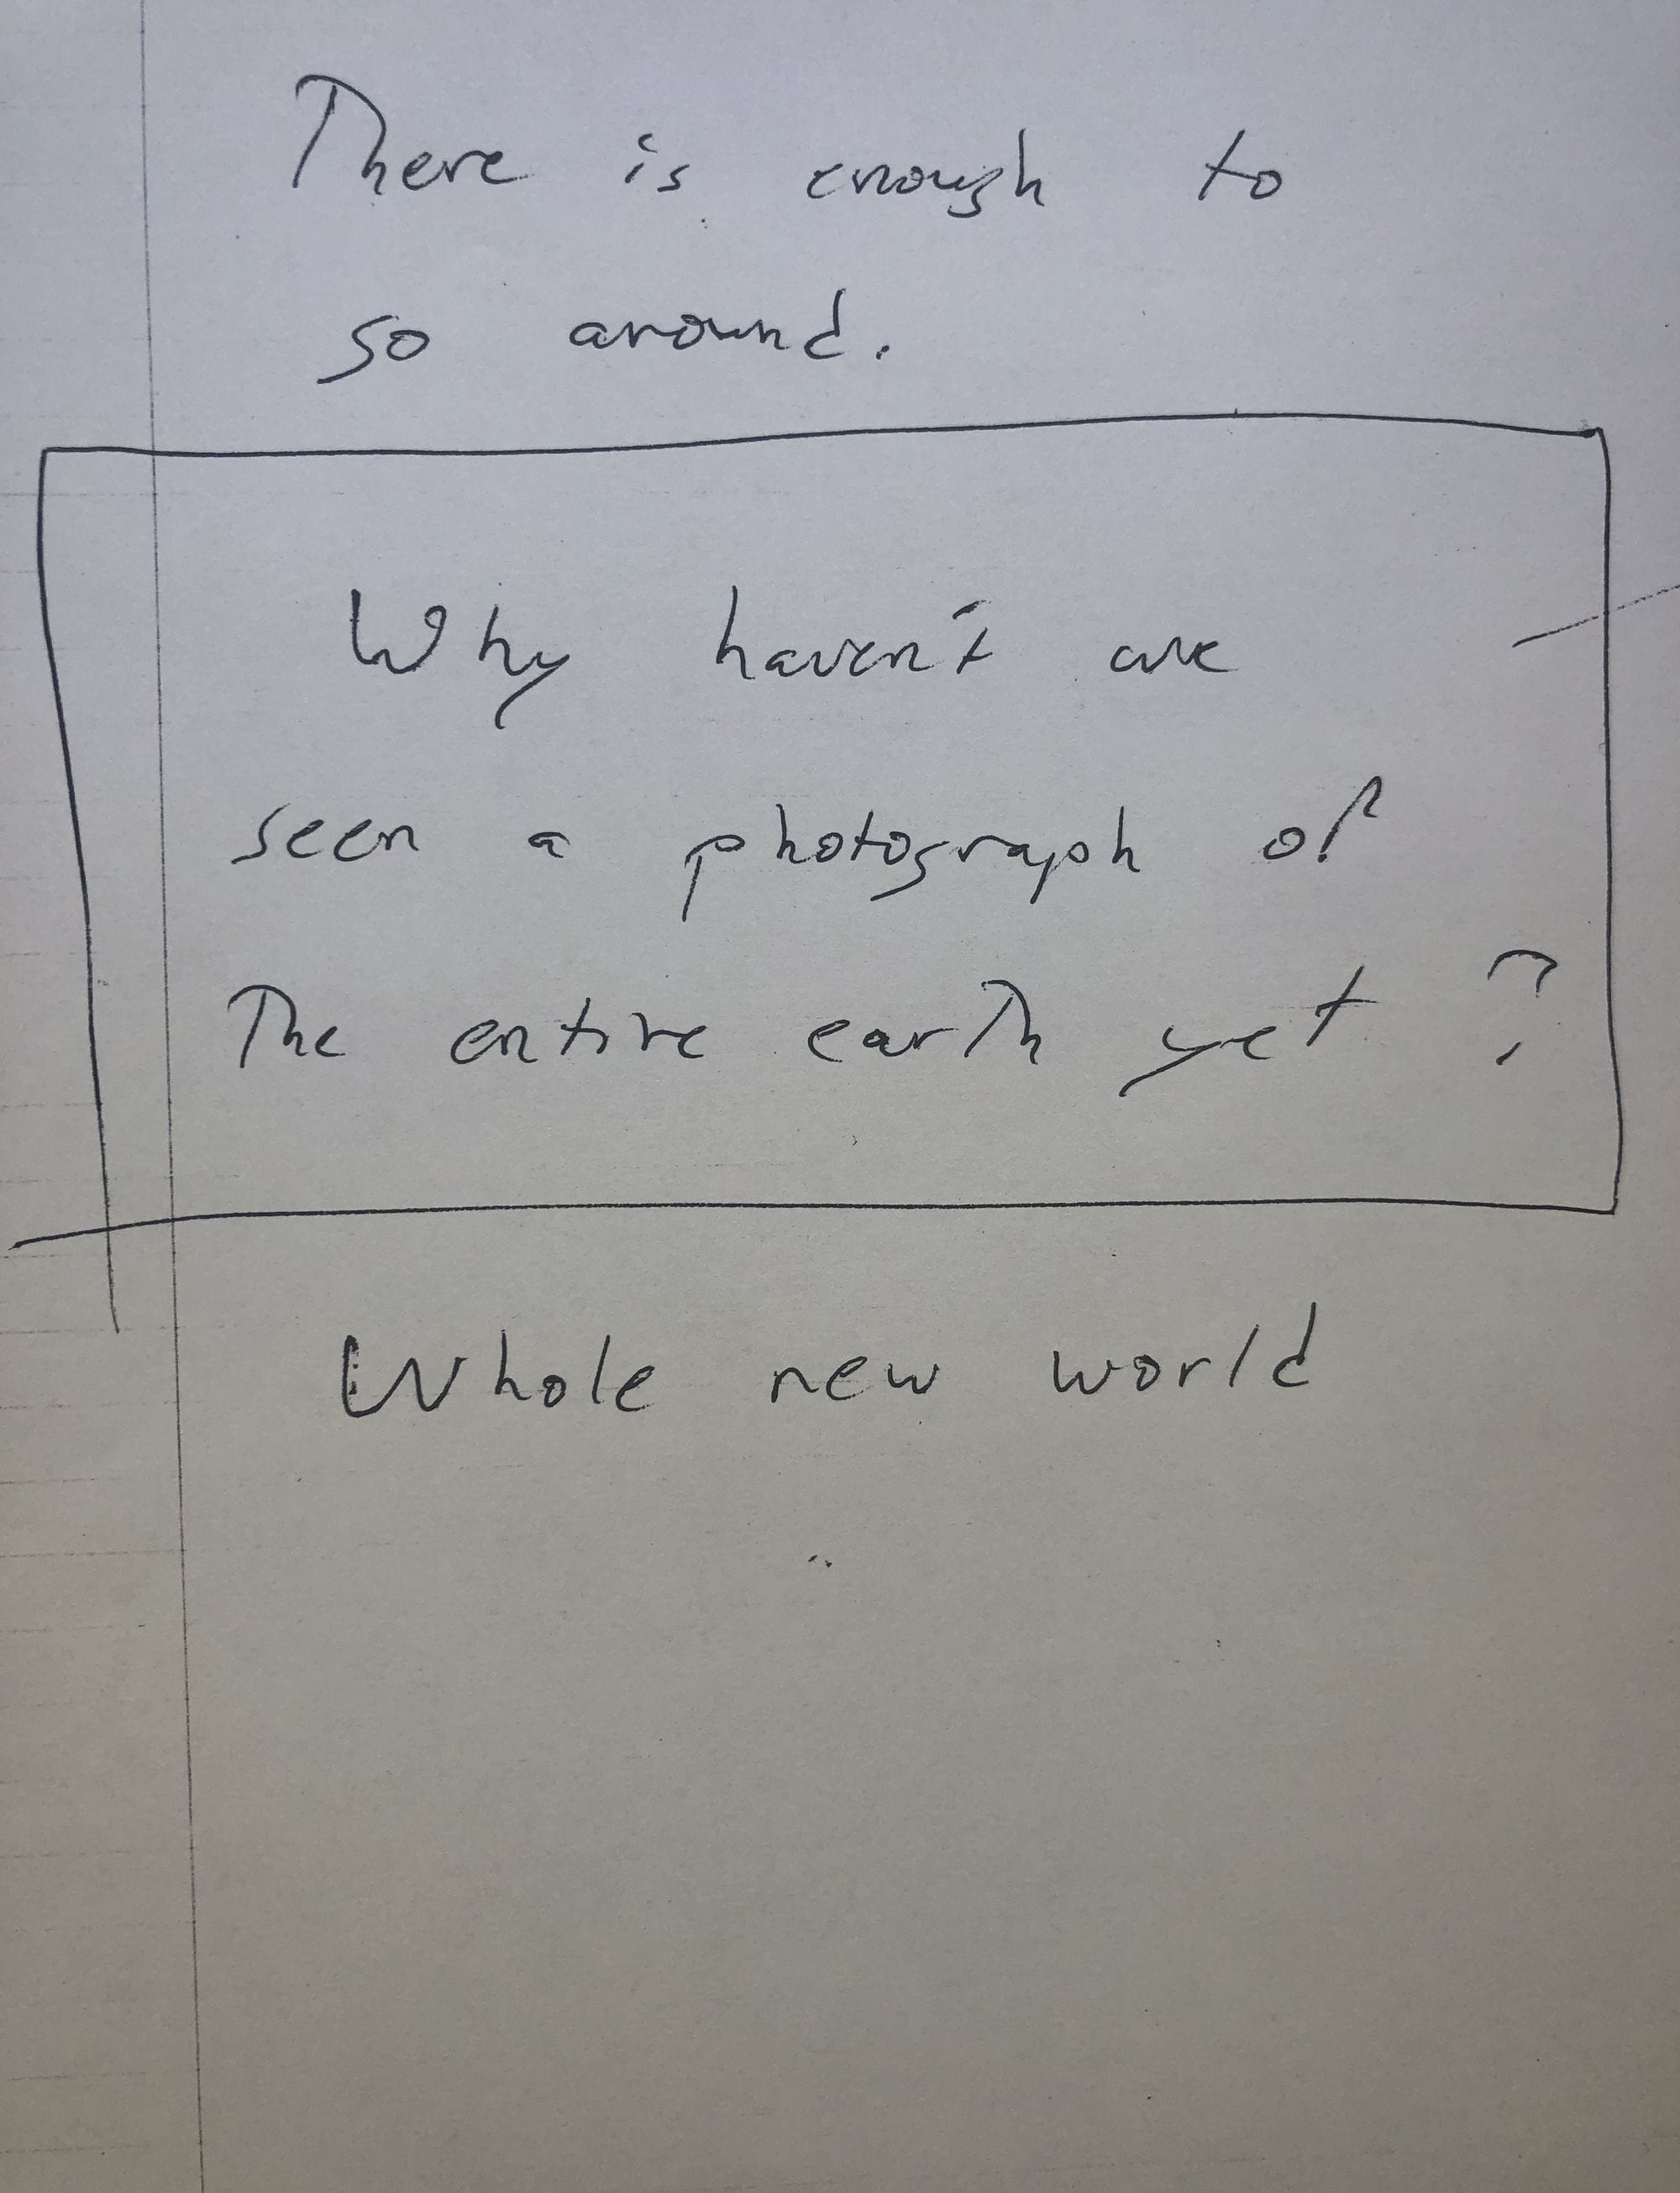 There is enough to
go around.
Why haven't we
seen a photograph of
The entire earth yet?
Whole new world